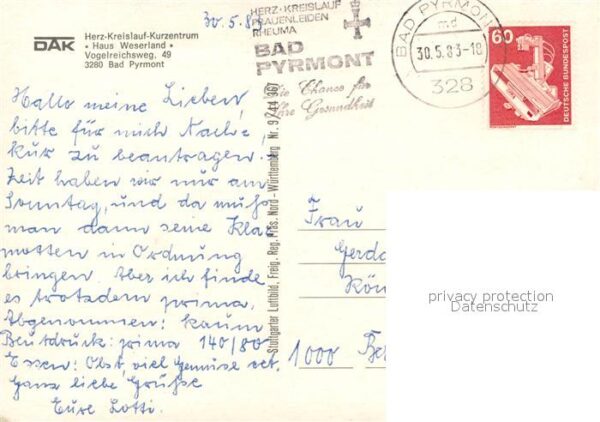 30.5.83
DAK
Herz-Kreislauf-Kurzentrum
• Haus Weserland •
Vogelreichsweg. 49
3280 Bad Pyrmont
HERZ-KREISLAUF
FRAUENLEIDEN
RHEUMA
BAD
PYRMONT
Die Chance für
Ihre Gesundheit
BAD PYRMONT
md
30.5.83-18
328
60
DEUTSCHE BUNDESPOST
Hallo meine Lieben,
bitte für mich Nach-
kur zu beantragen.
Zeit haben wir nur am
Sonntag, und da muß
man dann seine Kla-
motten in Ordnung
bringen. Aber ich finde
es trotzdem prima.
Abgenommen: kaum
Blutdruck: prima 140/80
Essen: Obst, viel Gemüse etc.
Ganz liebe Grüße
Eure Lotti.
Stuttgarter Luftbild, Freig. Reg. Präs. Nord-Württemberg Nr. 9/44 367
Frau
Gerda
Kön
1000 Be
privacy protection
Datenschutz